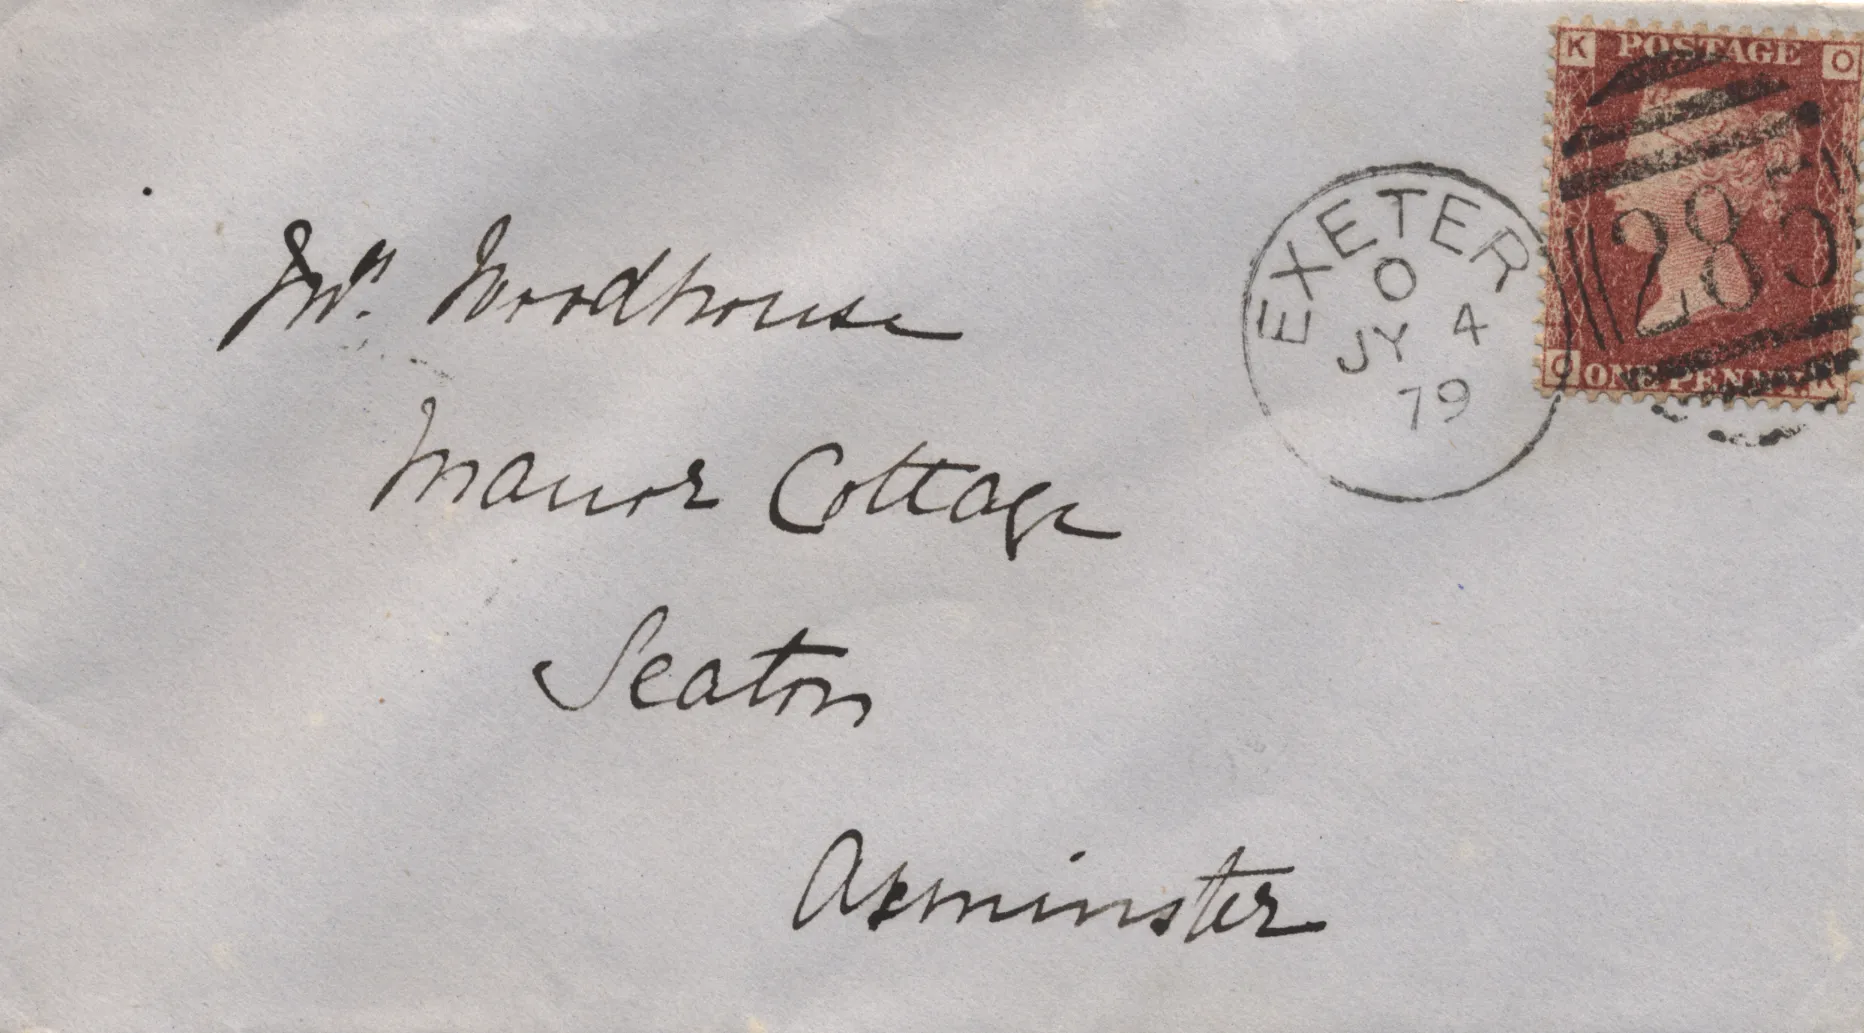 K POSTAGE O
EXETER
O
JY 4
79
285
O ONE PENNY. K
Mrs. Woodhouse
Manor Cottage
Seaton
Axminster